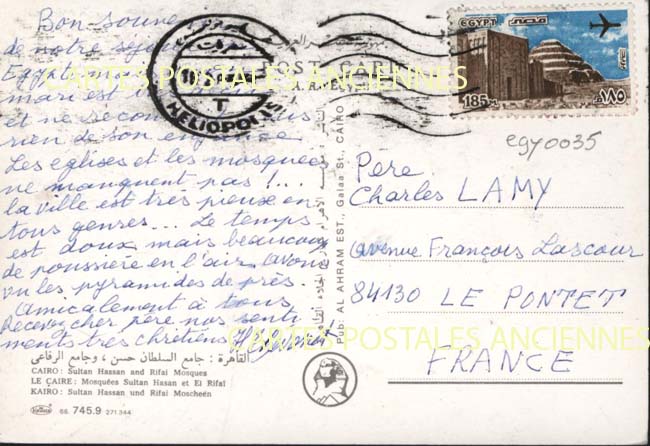 Bon souvenir
de notre séjour
Egypte
mari est
et ne reconnait plus
rien de son enfance
Les eglises et les mosquees
ne manquent pas !...
la ville est très pieux en
tous genres... Le temps
est doux mais beaucoup
de poussière en l'air. avons
vu les pyramides de près.
Amicalement à tous
Recevez cher père nos senti-
ments très chrétiens
القاهرة : جامع السلطان حسن ، وجامع الرفاعي
CAIRO : Sultan Hassan and Rifai Mosques
LE CAIRE : Mosquées Sultan Hasan et El Rifai
KAIRO : Sultan Hassan und Rifai Moscheen
66 745.9 271.344
POST CARD
HELIOPOLIS
T
Pub. AL AHRAM EST., Galaa St., CAIRO
EGYPT مصر
185M ١٨٥
egy0035
Pere
Charles LAMY
avenue François Lascour
84130 LE PONTET
FRANCE
CARTES POSTALES ANCIENNES
CARTES POSTALES ANCIENNES